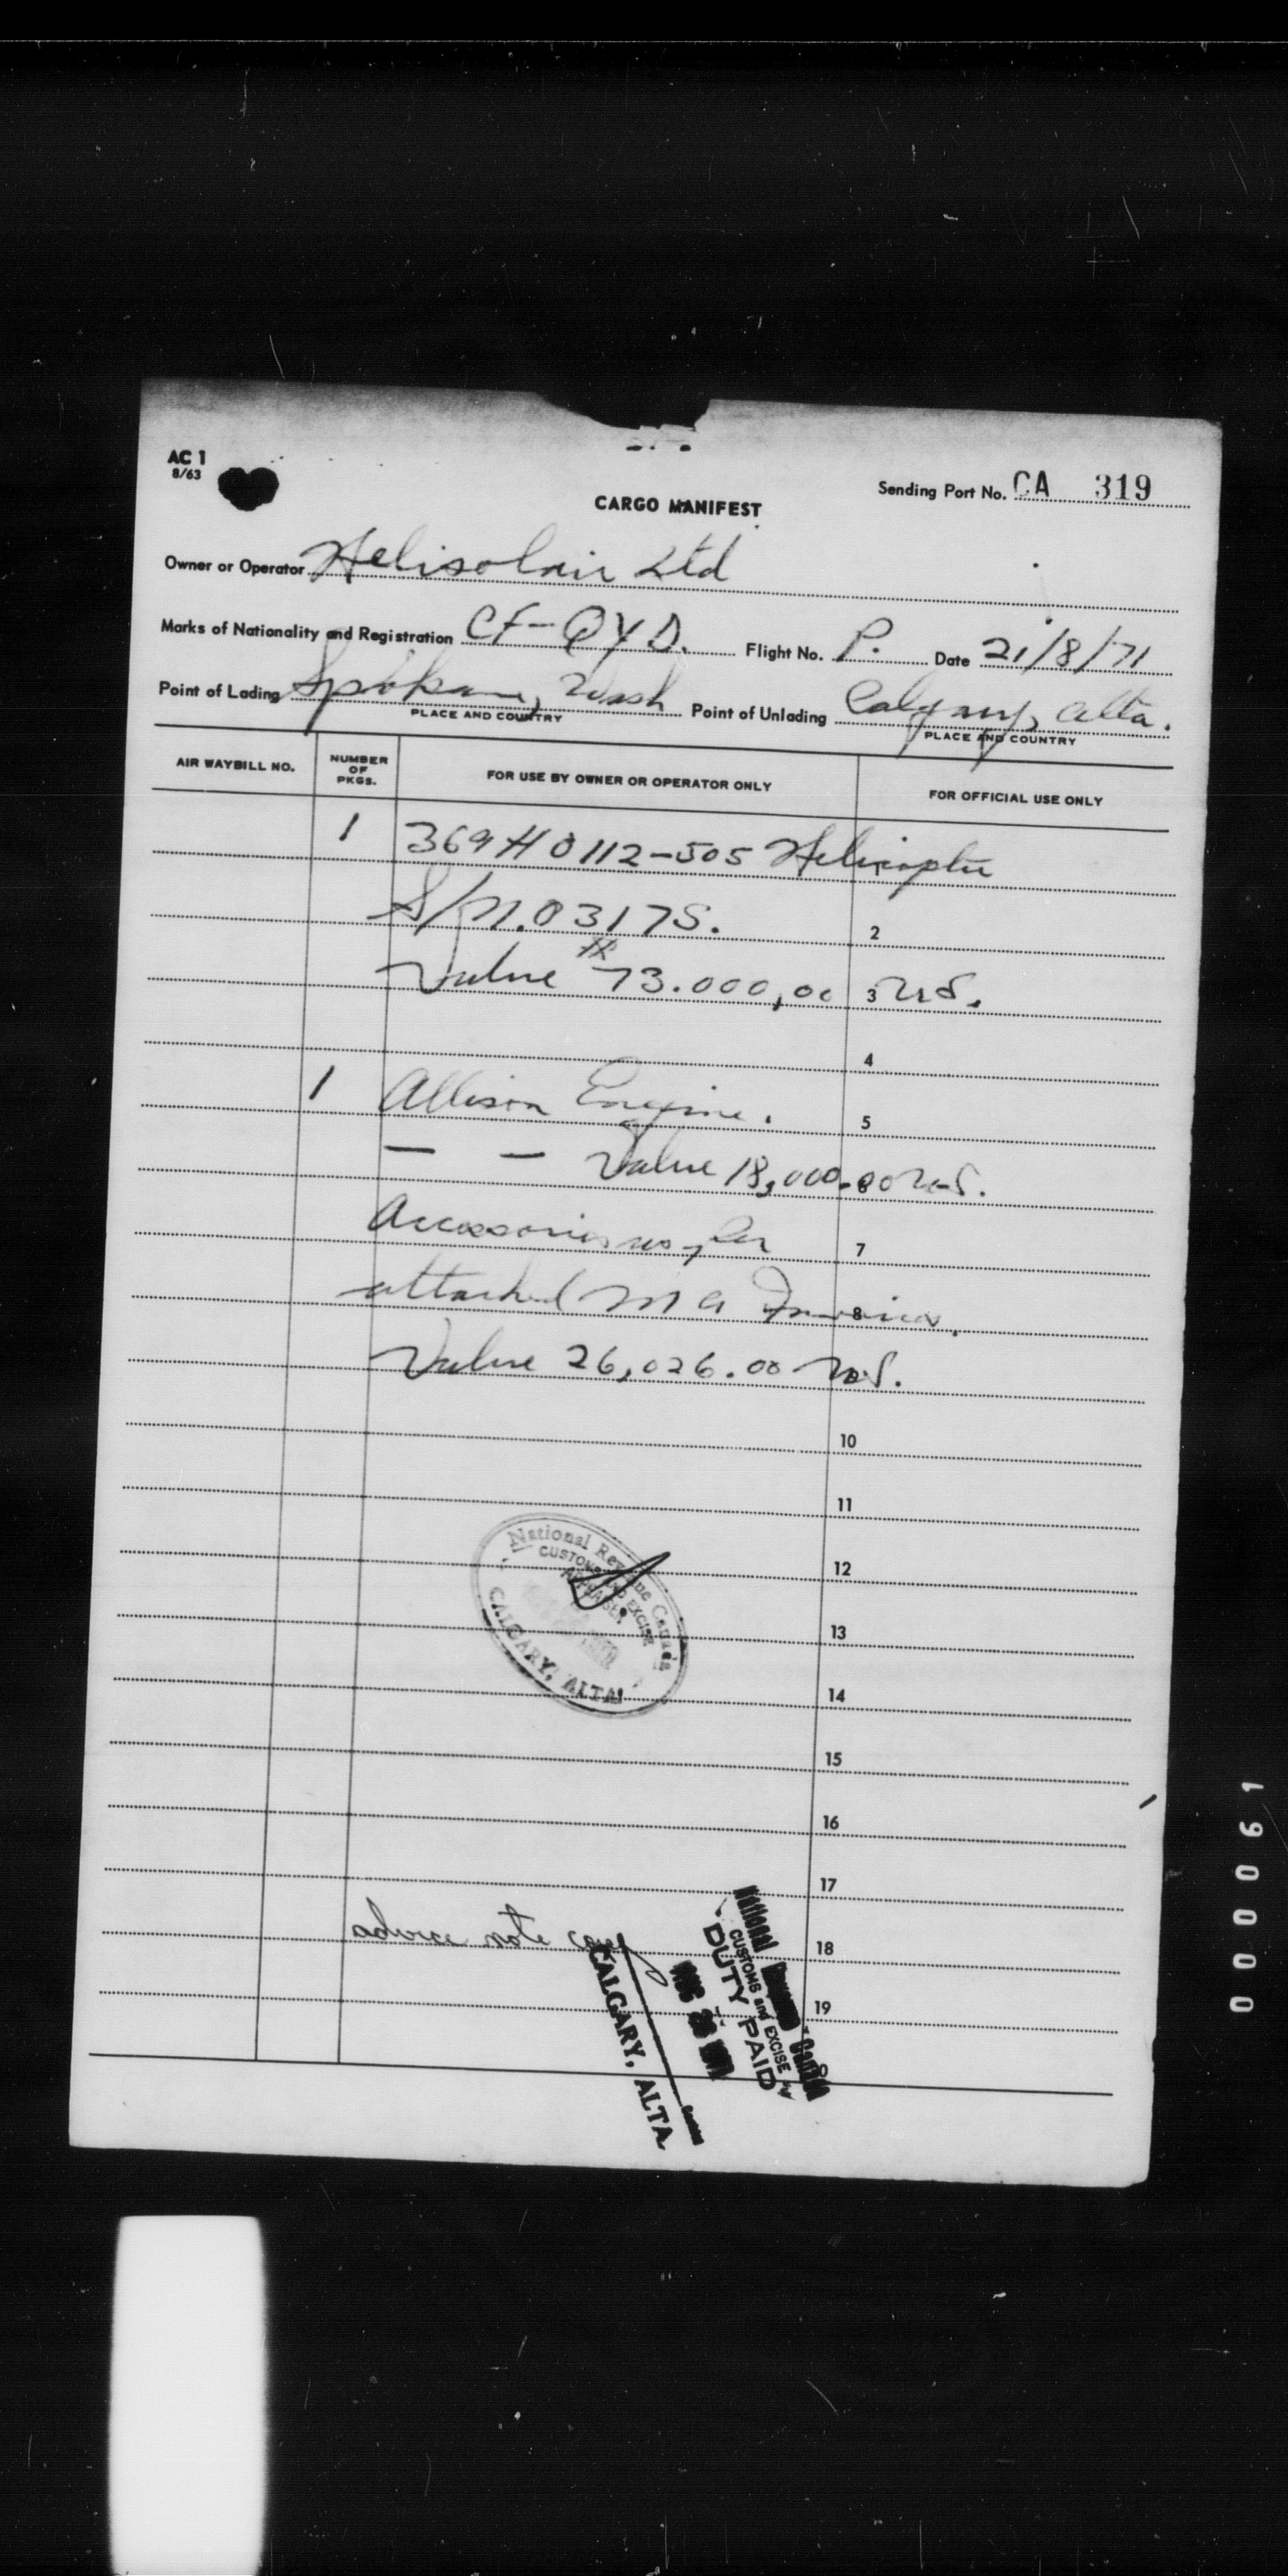 AC 1
8/63
CARGO MANIFEST
Sending Port No. CA 319
Owner or Operator Helisolair Ltd
Marks of Nationality and Registration CF-QYD. Flight No. P. Date 21/8/71
Point of Lading Spokane, Wash Point of Unlading Calgary, Alta.
PLACE AND COUNTRY PLACE AND COUNTRY
AIR WAYBILL NO. NUMBER OF PKGS. FOR USE BY OWNER OR OPERATOR ONLY FOR OFFICIAL USE ONLY
1 369H 0112-505 Helicopter
S/N. 0317S. 2
Value 73.000,00 3 U.S.
4
1 Allison Engine. 5
— — Value 18,000.00 U.S.
Accessories as per 7
attached M A Invoice. 8
Value 26,026.00 U.S.
10
11
12
National Revenue Canada
CUSTOMS AND EXCISE
APPRAISER
CALGARY, ALTA
13
14
15
16
17
advice note copy 18
19
National Revenue Canada
CUSTOMS and EXCISE
DUTY PAID
CALGARY, ALTA
000061